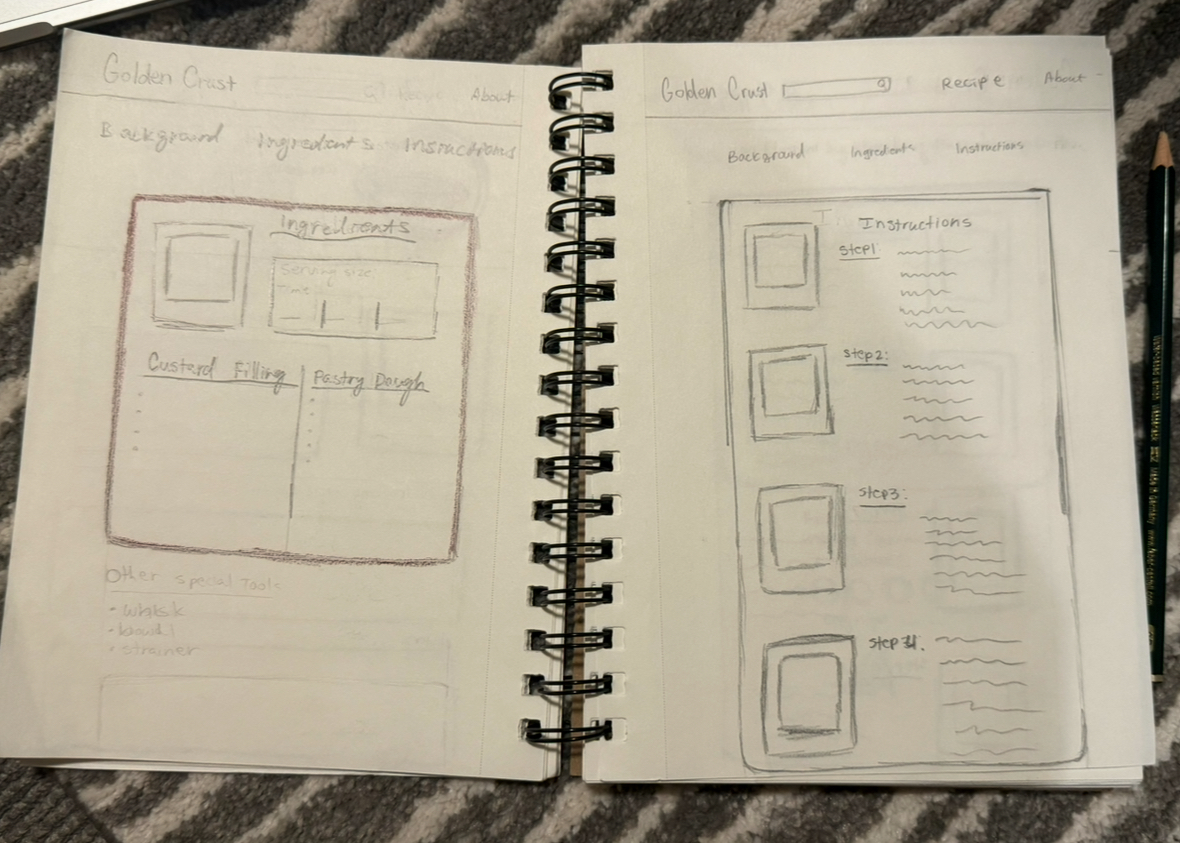 Golden Crust About
Background Ingredients Instructions
Ingredients
Serving size
Time
Custard Filling Pastry Dough
Other special Tools
• whisk
• bowl
• strainer
Golden Crust Recipe About
Background Ingredients Instructions
Instructions
step1
step2:
step3:
step 4.